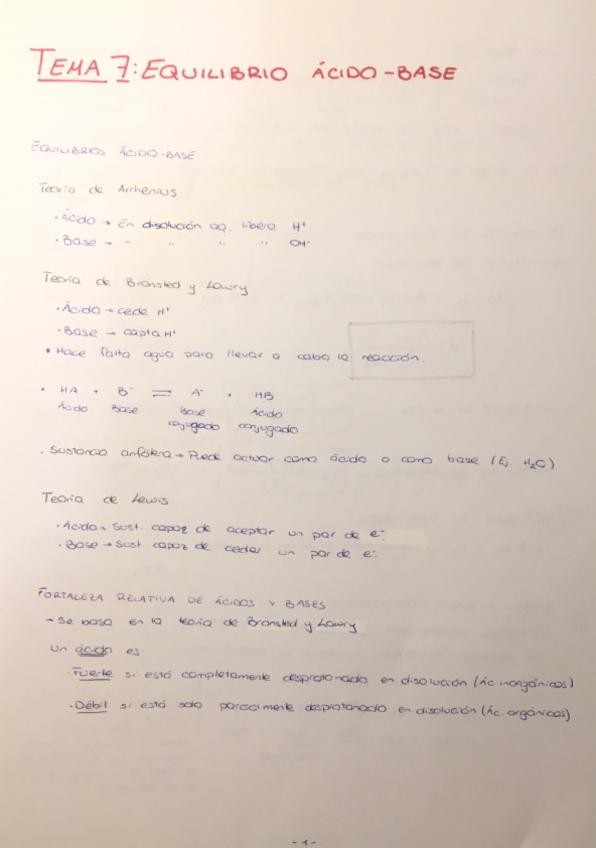 TEMA 7: EQUILIBRIO ÁCIDO-BASE
EQUILIBRIOS ÁCIDO-BASE
Teoría de Arrhenius
· Ácido → En disolución aq. libera H⁺
· Base → " " " " OH⁻
Teoría de Brönsted y Lowry
· Ácido → cede H⁺
· Base → capta H⁺
* Hace falta agua para llevar a cabo la reacción.
· HA + B⁻ ⇌ A⁻ + HB
Ácido Base Base Ácido
conjugado conjugado
· Sustancia anfótera → Puede actuar como ácido o como base (Ej. H₂O)
Teoría de Lewis
· Ácido → Sust. capaz de aceptar un par de e⁻.
· Base → Sust. capaz de ceder un par de e⁻.
FORTALEZA RELATIVA DE ÁCIDOS Y BASES
→ Se basa en la teoría de Brönsted y Lowry
Un ácido es:
· Fuerte si está completamente desprotonado en disolución (Ác. inorgánicos)
· Débil si está solo parcialmente desprotonado en disolución (Ác. orgánicos)
- 1 -